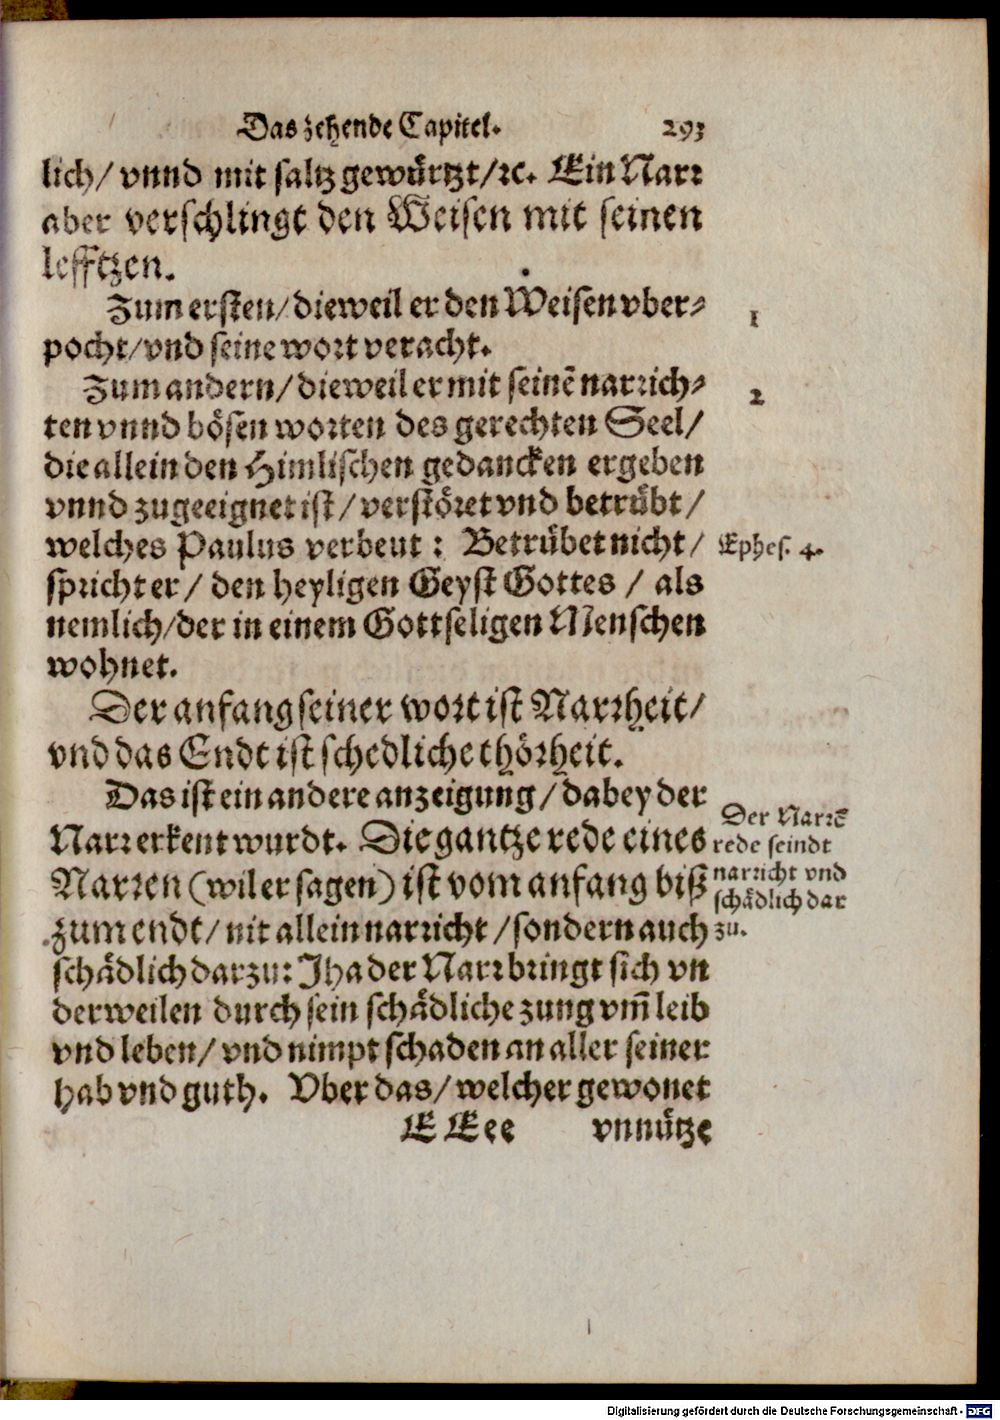 Das zehende Capitel. 293
lich/ vnnd mit saltz gewürtzt/ꝛc. Ein Narr
aber verschlingt den Weisen mit seinen
lefftzen.
Zum ersten/ dieweil er den Weisen vber-
pocht/ vnd seine wort veracht.
1
Zum andern/ dieweil er mit seinē narrich-
2
ten vnnd bösen worten des gerechten Seel/
die allein den Himlischen gedancken ergeben
vnnd zugeeignet ist/ verstöret vnd betrübt/
welches Paulus verbeut: Betrübet nicht/
Ephes. 4.
spricht er/ den heyligen Geyst Gottes/ als
nemlich/ der in einem Gottseligen Menschen
wohnet.
Der anfang seiner wort ist Narrheit/
vnd das Endt ist schedliche thörheit.
Das ist ein andere anzeigung/ dabey der
Narr erkent wurdt. Die gantze rede eines
Narren (wil er sagen) ist vom anfang biß
zum endt/ nit allein narricht/ sondern auch
schädlich darzu: Jha der Narr bringt sich vn
derweilen durch sein schädliche zung vm̄ leib
vnd leben/ vnd nimpt schaden an aller seiner
hab vnd guth. Vber das/ welcher gewonet
Der Narrē
rede seindt
narricht vnd
schädlich dar
zu.
E Eee vnnütze
Digitalisierung gefördert durch die Deutsche Forschungsgemeinschaft - DFG